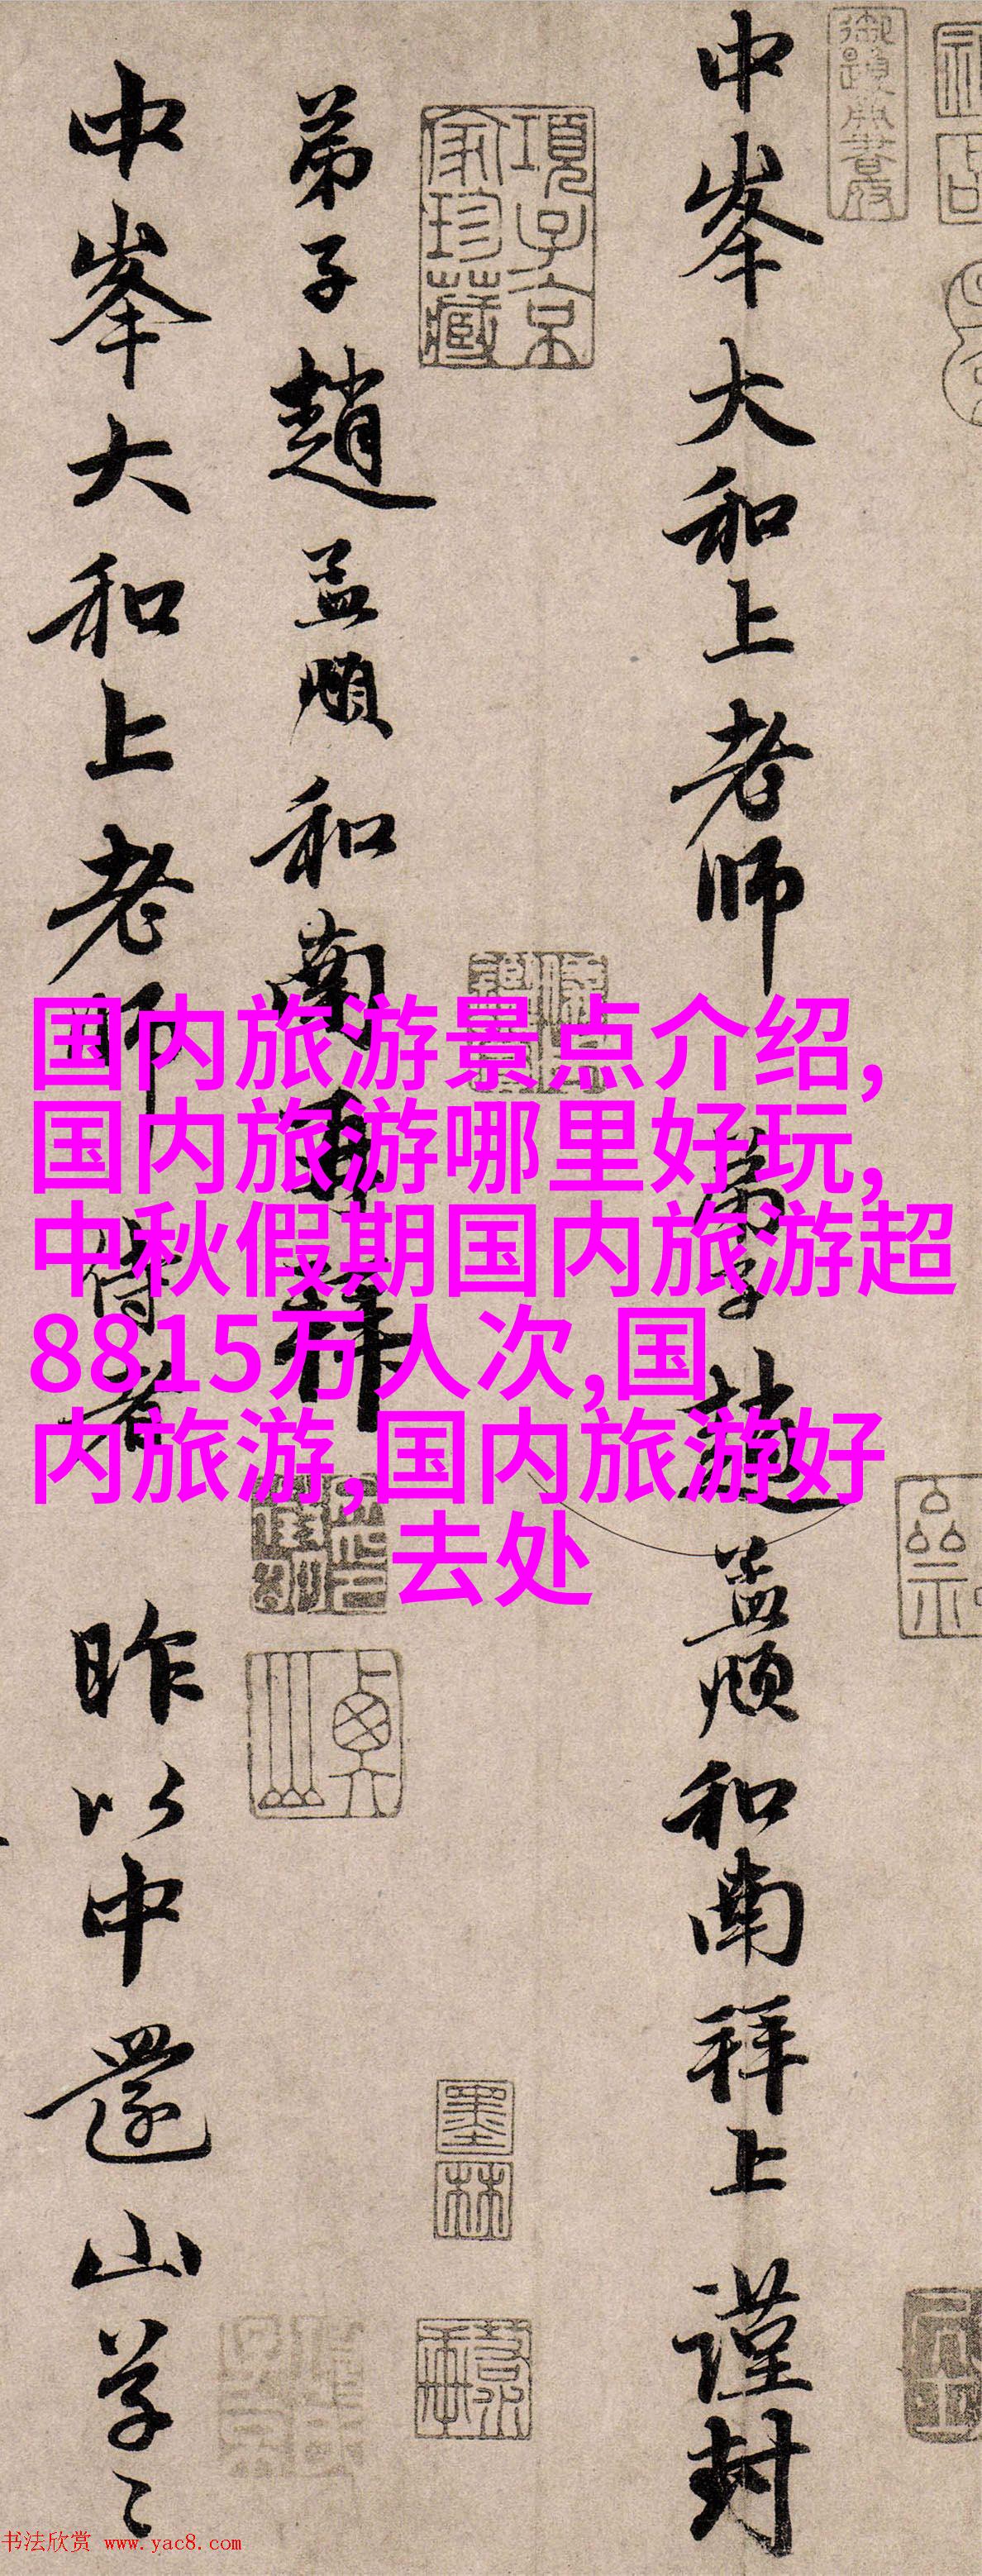 中峯大和上老師 弟子趙孟頫和南拜上 謹封
弟子趙孟頫和南再拜
中峯大和上老師侍者 昨以中還山草〻
御題麻書府
項子京
家珍藏
墨
林
国内旅游景点介绍,
国内旅游哪里好玩,
中秋假期国内旅游超
8815万人次,国
内旅游,国内旅游好
去处
书法欣赏 www.yac8.com